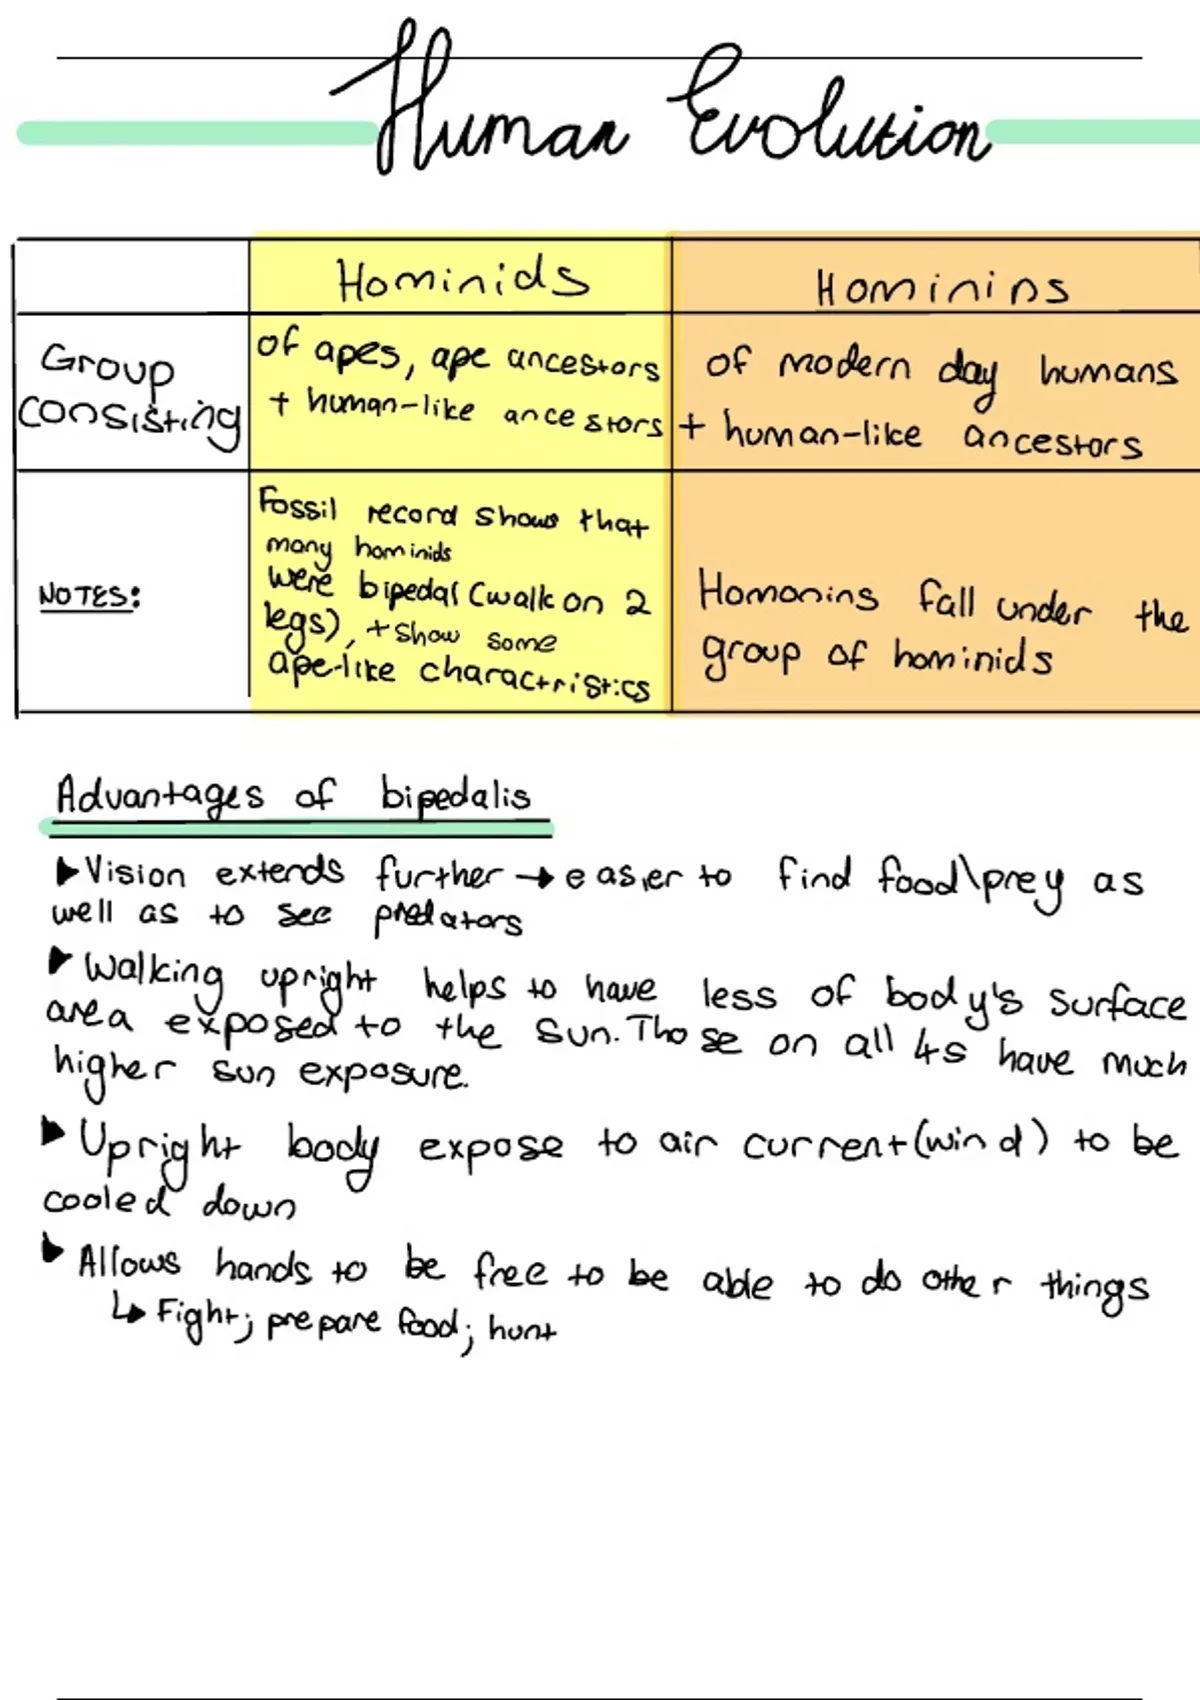 Human Evolution
Hominids
Hominins
Group
consisting
of apes, ape ancestors
+ human-like ancestors
of modern day humans
+ human-like ancestors
NOTES:
Fossil record shows that
many hominids
were bipedal (walk on 2
legs), + show some
ape-like charactristics
Homonins fall under the
group of hominids
Advantages of bipedalis
▶Vision extends further → easier to find food\prey as
well as to see predators
▶Walking upright helps to have less of body's surface
area exposed to the sun. Those on all 4s have much
higher sun exposure.
▶Upright body expose to air current (wind) to be
cooled down
▶Allows hands to be free to be able to do other things
↳ Fight; prepare food; hunt